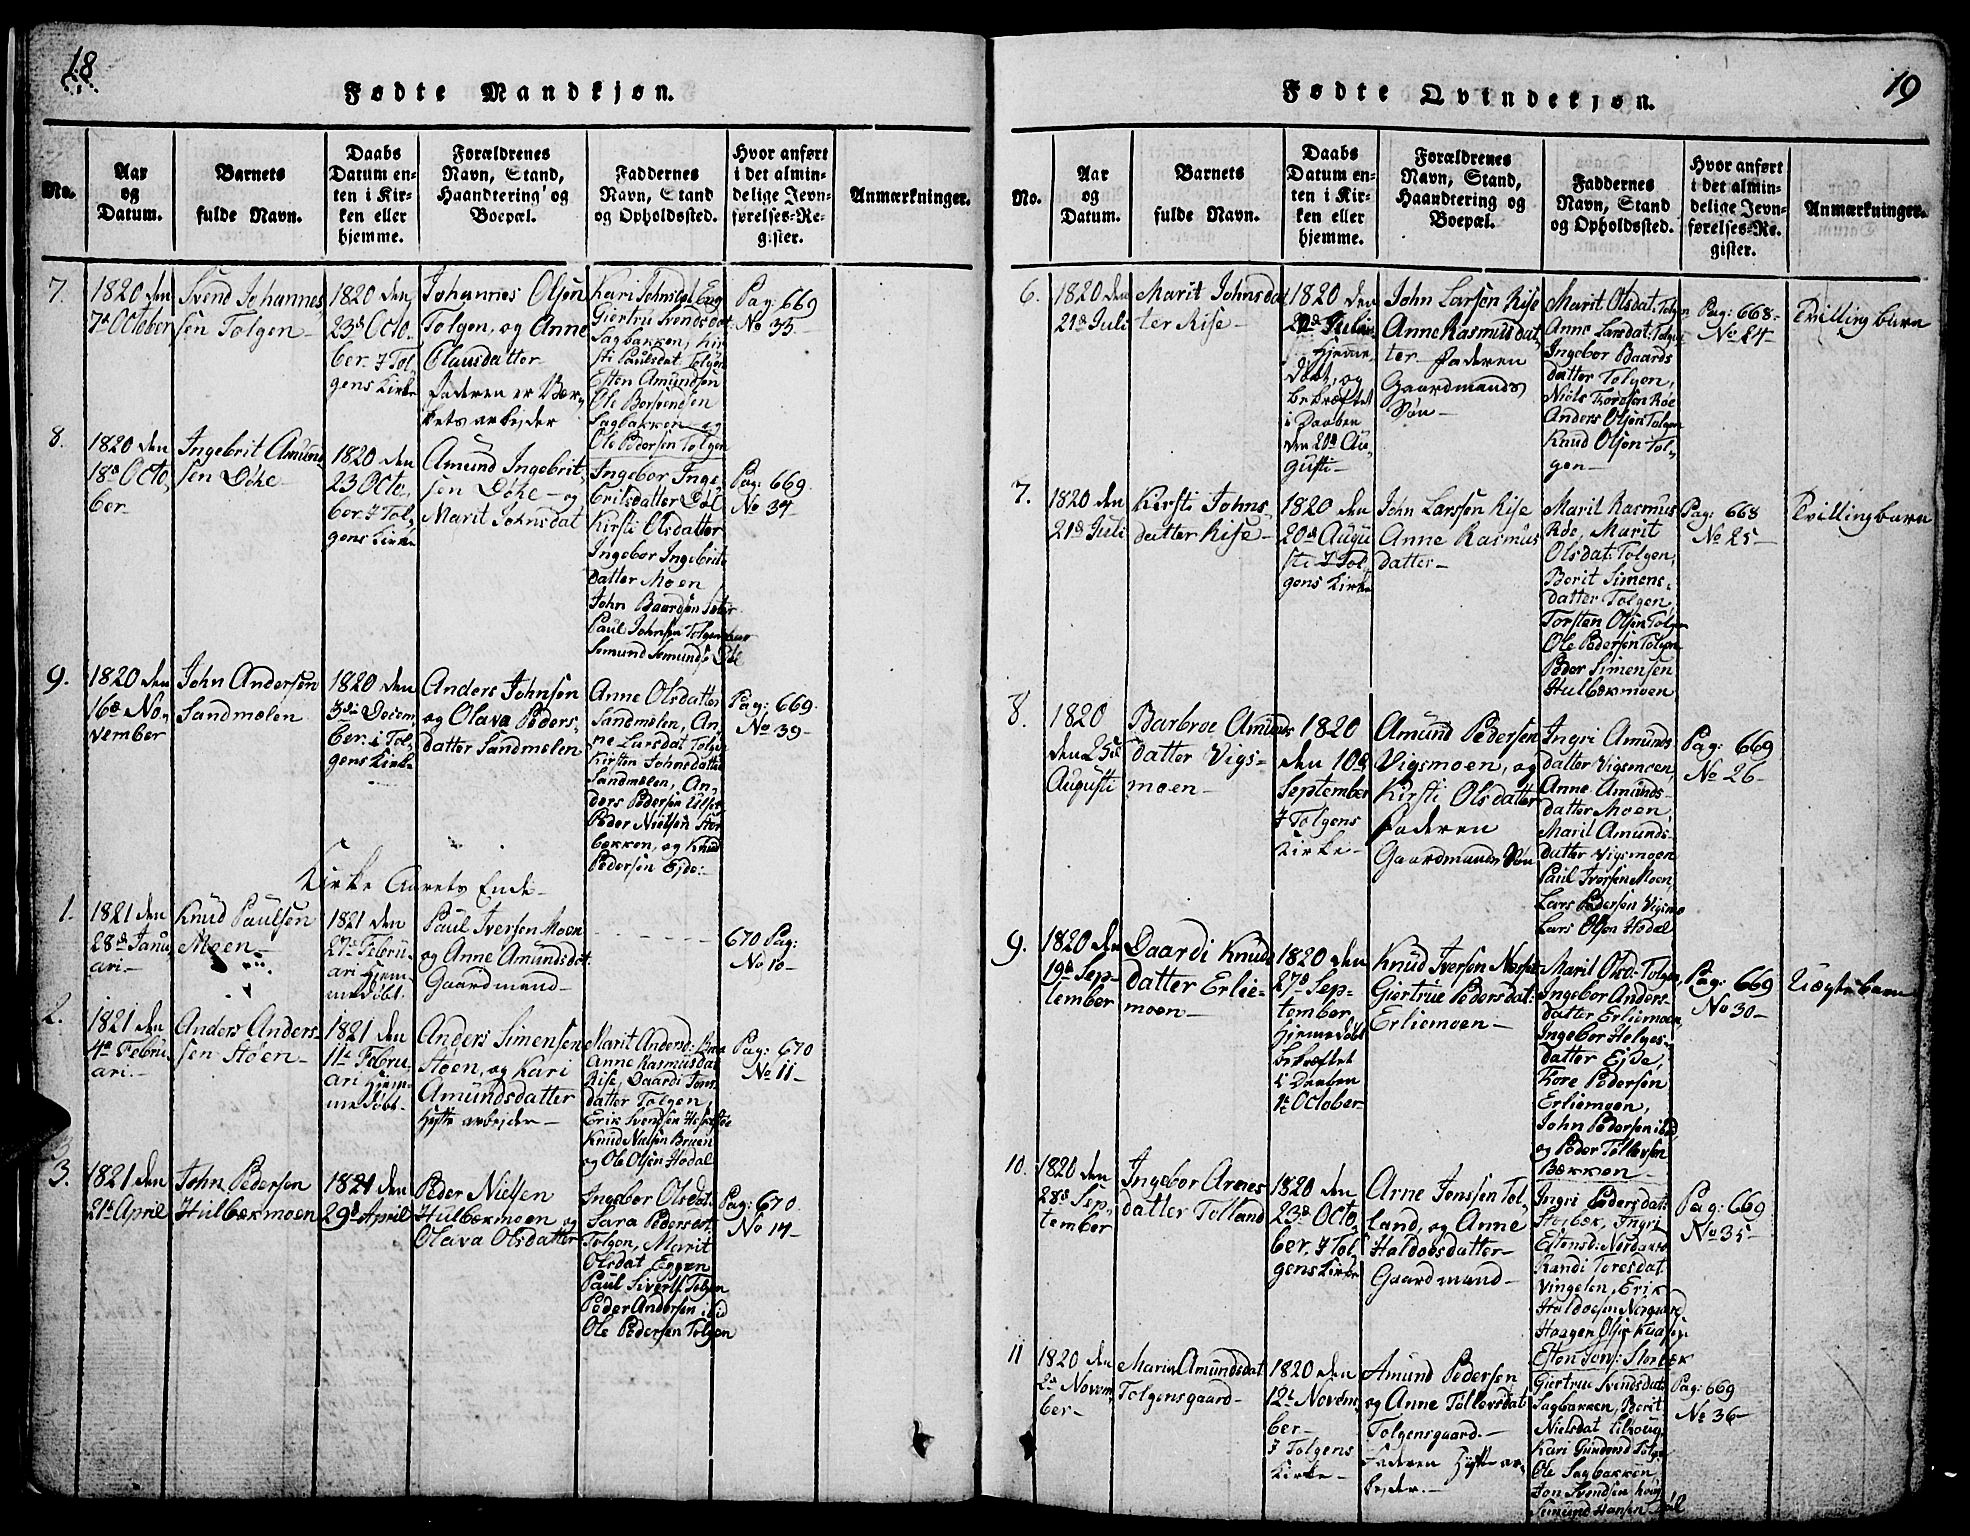 18
Fødte Mandkjøn.
No.
Aar
og
Datum.
Barnets
fulde Navn.
Daabs
Datum en-
ten i Kir-
ken eller
hjemme.
Forældrenes
Navn, Stand,
Haandtering og
Boepæl.
Faddernes
Navn, Stand
og Opholdssted.
Hvor anført
i det almin-
delige Jevn-
førelses-Re-
gister.
Anmærkninger.
7.
1820 den
7de October
Svend Johannes
sen Tolgen
1820 den
23de Octo
ber. I Tol
gens Kirke
Johannes Olsen
Tolgen, og Anne
Olausdatter
Faderen er Vær
kets arbejder
Kari Johnsdat Eng
Giertru Svendsdat
Sagbakken, Kir
sti Paulsdat. Tolgen
Esten Amundsen
Ole
Sagbakken og
Ole Pedersen Tolgen
Pag: 669
No 33-
8.
1820 den
18de Octo
ber-
Ingebrit Amund
sen Döhe
1820 den
23 Octo
ber. I Tol
gens Kirke
Amund Ingebrit
sen Döhe - og
Marit Johnsdat
Ingebor Inge
britsdatter Döl
Kirsti Olsdatter
Ingebor Ingebrits
datter Moen
John Baardsen
Paul Johnsen Tolgen
Semund Semunds
Pag: 669.
No 34-
9.
1820 den
16de No
vember
John Andersen
Sandmælen
1820 den
3die Decem
ber. i Tol
gens Kirke
Anders Johnsen
og Olava Peders
datter Sandmælen
Anne Olsdatter
Sandmælen, An
ne Larsdat Tolgen
Kirsten Johnsdatter
Sandmælen, An
ders Pedersen
Peder Nielsen Stor
bekken, og Knud
Pedersen Ejde:
Pag: 669.
No 39-
Kirke Aarets Ende-
1.
1821 den
28de Janu
ari-
Knud Paulsen
Moen-
1821 den
27de Febru
ari Hjem
medöbt.
Paul Iversen Moen
og Anne Amundsdat.
Gaardmand-
670 Pag:
No 10-
2.
1821 den
4de Febru
ari.-
Anders Anders-
sen Stöen-
1821 den
11te Febru
ari Hjem
medöbt.
Anders Simensen
Stöen, og Kari
Amundsdatter
Hytte arbejder-
Marit Andersd:
Anne Rasmusdat
Rise, Daardi Jons
datter Tolgen,
Erik Svendsen
Knud Nielsen Bruen
og Ole Olsen Hodal
Pag: 670
No 11-
3.
1821 den
21de April
John Pedersen
Hulbækmoen
1821 den
29de April
Peder Nielsen
Hulbækmoen og
Olava Olsdatter
Ingebor Olsdat.
Sara Pedersdat.
Tolgen, Marit
Olsdat Eggen
Paul Sivertsen Tolgen
Peder Andersen ibid
Ole Pedersen Tolgen
Pag: 670.
No 14-
19
Fødte Qvindekjøn.
No.
Aar
og
Datum.
Barnets
fulde Navn.
Daabs
Datum en-
ten i Kir-
ken eller
hjemme.
Forældrenes
Navn, Stand,
Haandtering og
Boepæl.
Faddernes
Navn, Stand
og Opholdssted.
Hvor anført
i det almin-
delige Jevn-
førelses-Re-
gister.
Anmærkninger.
6.
1820 den
21de Juli
Marit Johnsdat
ter Rise-
1820 den
Hjemme
döbt, og
bekræftet
i Daaben
den 20de Au
gusti-
John Larsen Rise
Anne Rasmusdat
ter- Faderen
Gaardmands
Søn-
Marit Olsdat. Tolgen
Anne Larsdat. Tolgen
Ingebor Baards
datter Tolgen,
Niels Toresen Röe
Anders Olsen Tolgen
Knud Olsen Tol
gen-
Pag: 668-
No 24-
Tvillingbarn
7.
1820 den
21de Juli
Kirsti Johns
datter Rise-
1820 den
20de Augu
sti I Tol
gens Kirke
John Larsen Rise
Anne Rasmus
datter-
Marit Rasmus
Röe, Marit
Olsdat. Tolgen,
Berit Simens
datter Tolgen,
Torsten Olsen Tolgen
Ole Pedersen Tolgen
Peder Simensen
Hulbækmoen
Pag: 668
No 25-
Tvillingbarn
8.
1820
den 25de
Augusti
Barbroe Amunds
datter Vigs-
moen-
1820
den 10de
September
I Tolgens
Kirke-
Amund Pedersen
Vigsmoen, og
Kirsti Olsdatter
Faderen
Gaardmands Søn
Ingri Amunds
datter Vigsmoen,
Anne Amunds-
datter Moen
Marit Amunds-
datter Vigsmoen
Paul Iversen Moen
Lars Pedersen Vigsmo
Lars Olsen Hodal
Pag: 669
No 26-
9.
1820 den
19de Sep-
tember
Daardi Knuds
datter Erlie-
moen-
1820 den
27de Sep-
tember,
Hjemmedöbt
bekræftet
i Daaben
1te October
Knud Iversen
Giertrue Pedersdat.
Erliemoen-
Marit Olsd: Tolgen,
Ingebor Anders-
datter Erliemoen,
Ingebor Helges-
datter Ejde,
Tore Pedersen
Erliemoen,
John Pedersen ibid,
og Peder Tollefsen
Bækken-
Pag: 669
No 30-
Uægte barn
10.
1820 den
28de Sep
tember
Ingebor Arnes
datter Tolland
1820 den
23de Octo
ber. I Tol
gens Kirke
Arne Jonssen Tol
land, og Anne
Haldorsdatter-
Gaardmand-
Ingri Pedersdat.
Storbæk, Ingri
Estensd:
Randi Toresdat.
Vingelen, Erik
Haldorsen
Haagen Olsen
Esten Jons: Storbæk
Pag: 669
No 35-
11
1820 den
2de Novem
ber-
Maria Amundsdat
Tolgensgaard-
1820 den
12te Novem
ber-
I Tolgens
Kirke-
Amund Pedersen
og Anne Tollevsdat.
Tolgensgaard.-
Faderen Hytte ar
bejder.-
Giertrue Svendsdat.
Sagbakken, Berit
Nielsdat
Kari
Ole Sagbakken,
Jon Svendsen
Semund Hansen
Pag: 669
No 36-